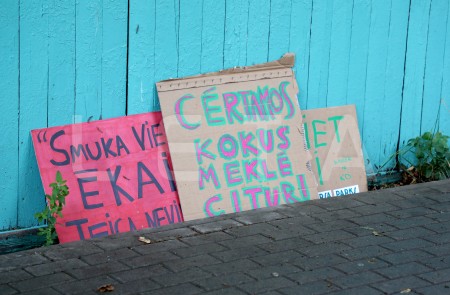 "SMUKA VIE
ĒKAI
TEICA NEVI
CĒRTAMOS
KOKUS
MEKLĒ
CITUR!
VIET
PARKS